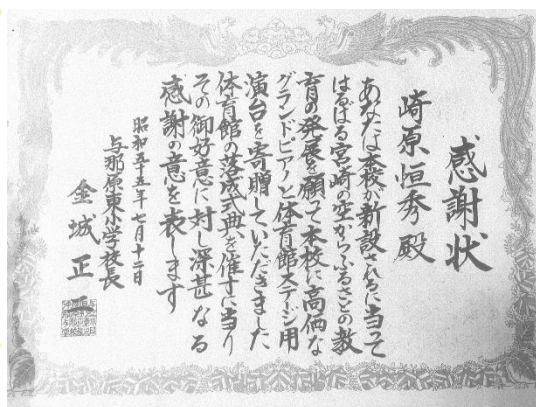 感謝状
崎原恒秀殿
あなたは本校が新設されるに当って
はるばる宮崎の空からふるさとの教
育の発展を願って本校に高価な
グランドピアノと体育館ステージ用
演台を寄贈していただきました
体育館の落成式典を催すに当り
その御好意に対し深甚なる
感謝の意を表します
昭和五十五年七月十二日
与那原東小学校長
金城正一